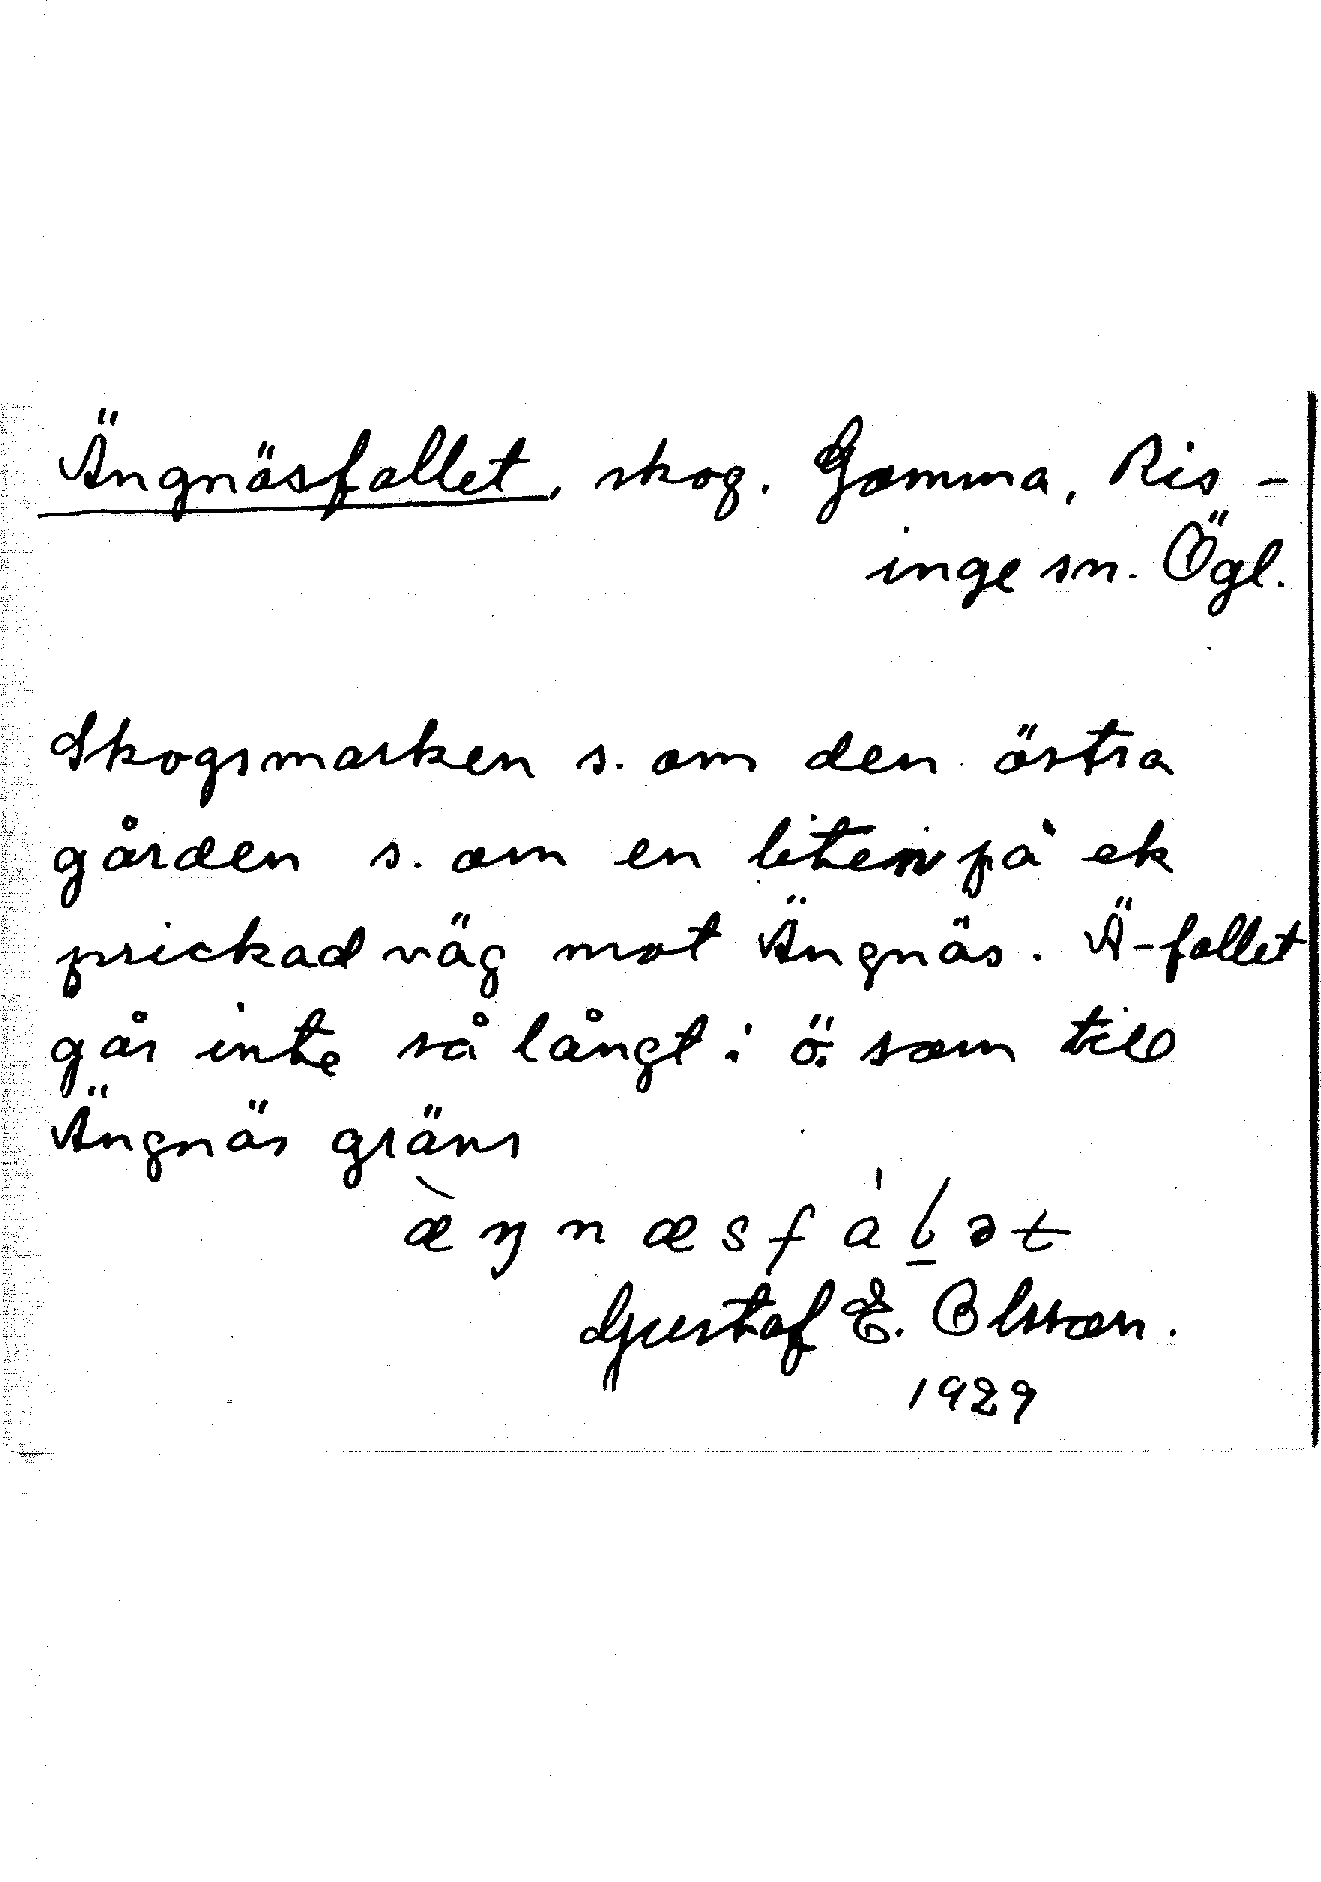 Ängnäsfallet, skog. Gomma, Ris-
inge sn. Ögl.
Skogsmarken s. om den östra
gården s. om en liten på ek
prickad väg mot Ängnäs. Ä-fallet
går inte så långt i ö. som till
Ängnäs gräns
æ̀ŋnæsfálət
Gustaf E. Olsson.
1929